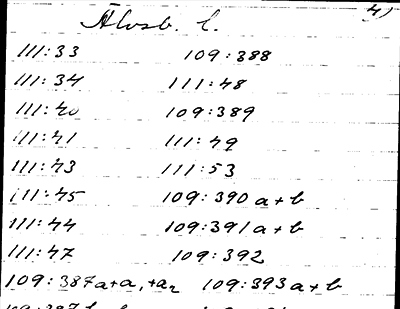 4)
Älvsb. l.
111:33 109:388
111:34 111:48
111:40 109:389
111:41 111:49
111:43 111:53
111:45 109:390 a+b
111:44 109:391 a+b
111:47 109:392
109:387a+a, +a2 109:393 a+b